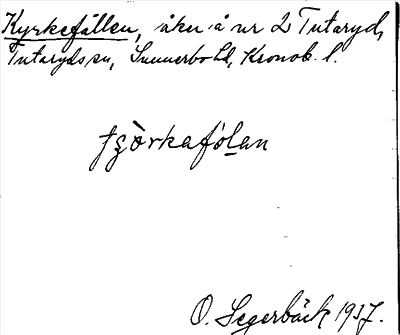 Kyrkefållen, åker å nr 2 Tutaryd,
Tutaryds sn, Sunnerbo hd, Kronob. l.
tʂòrkafólan
O. Segerbäck 1937.